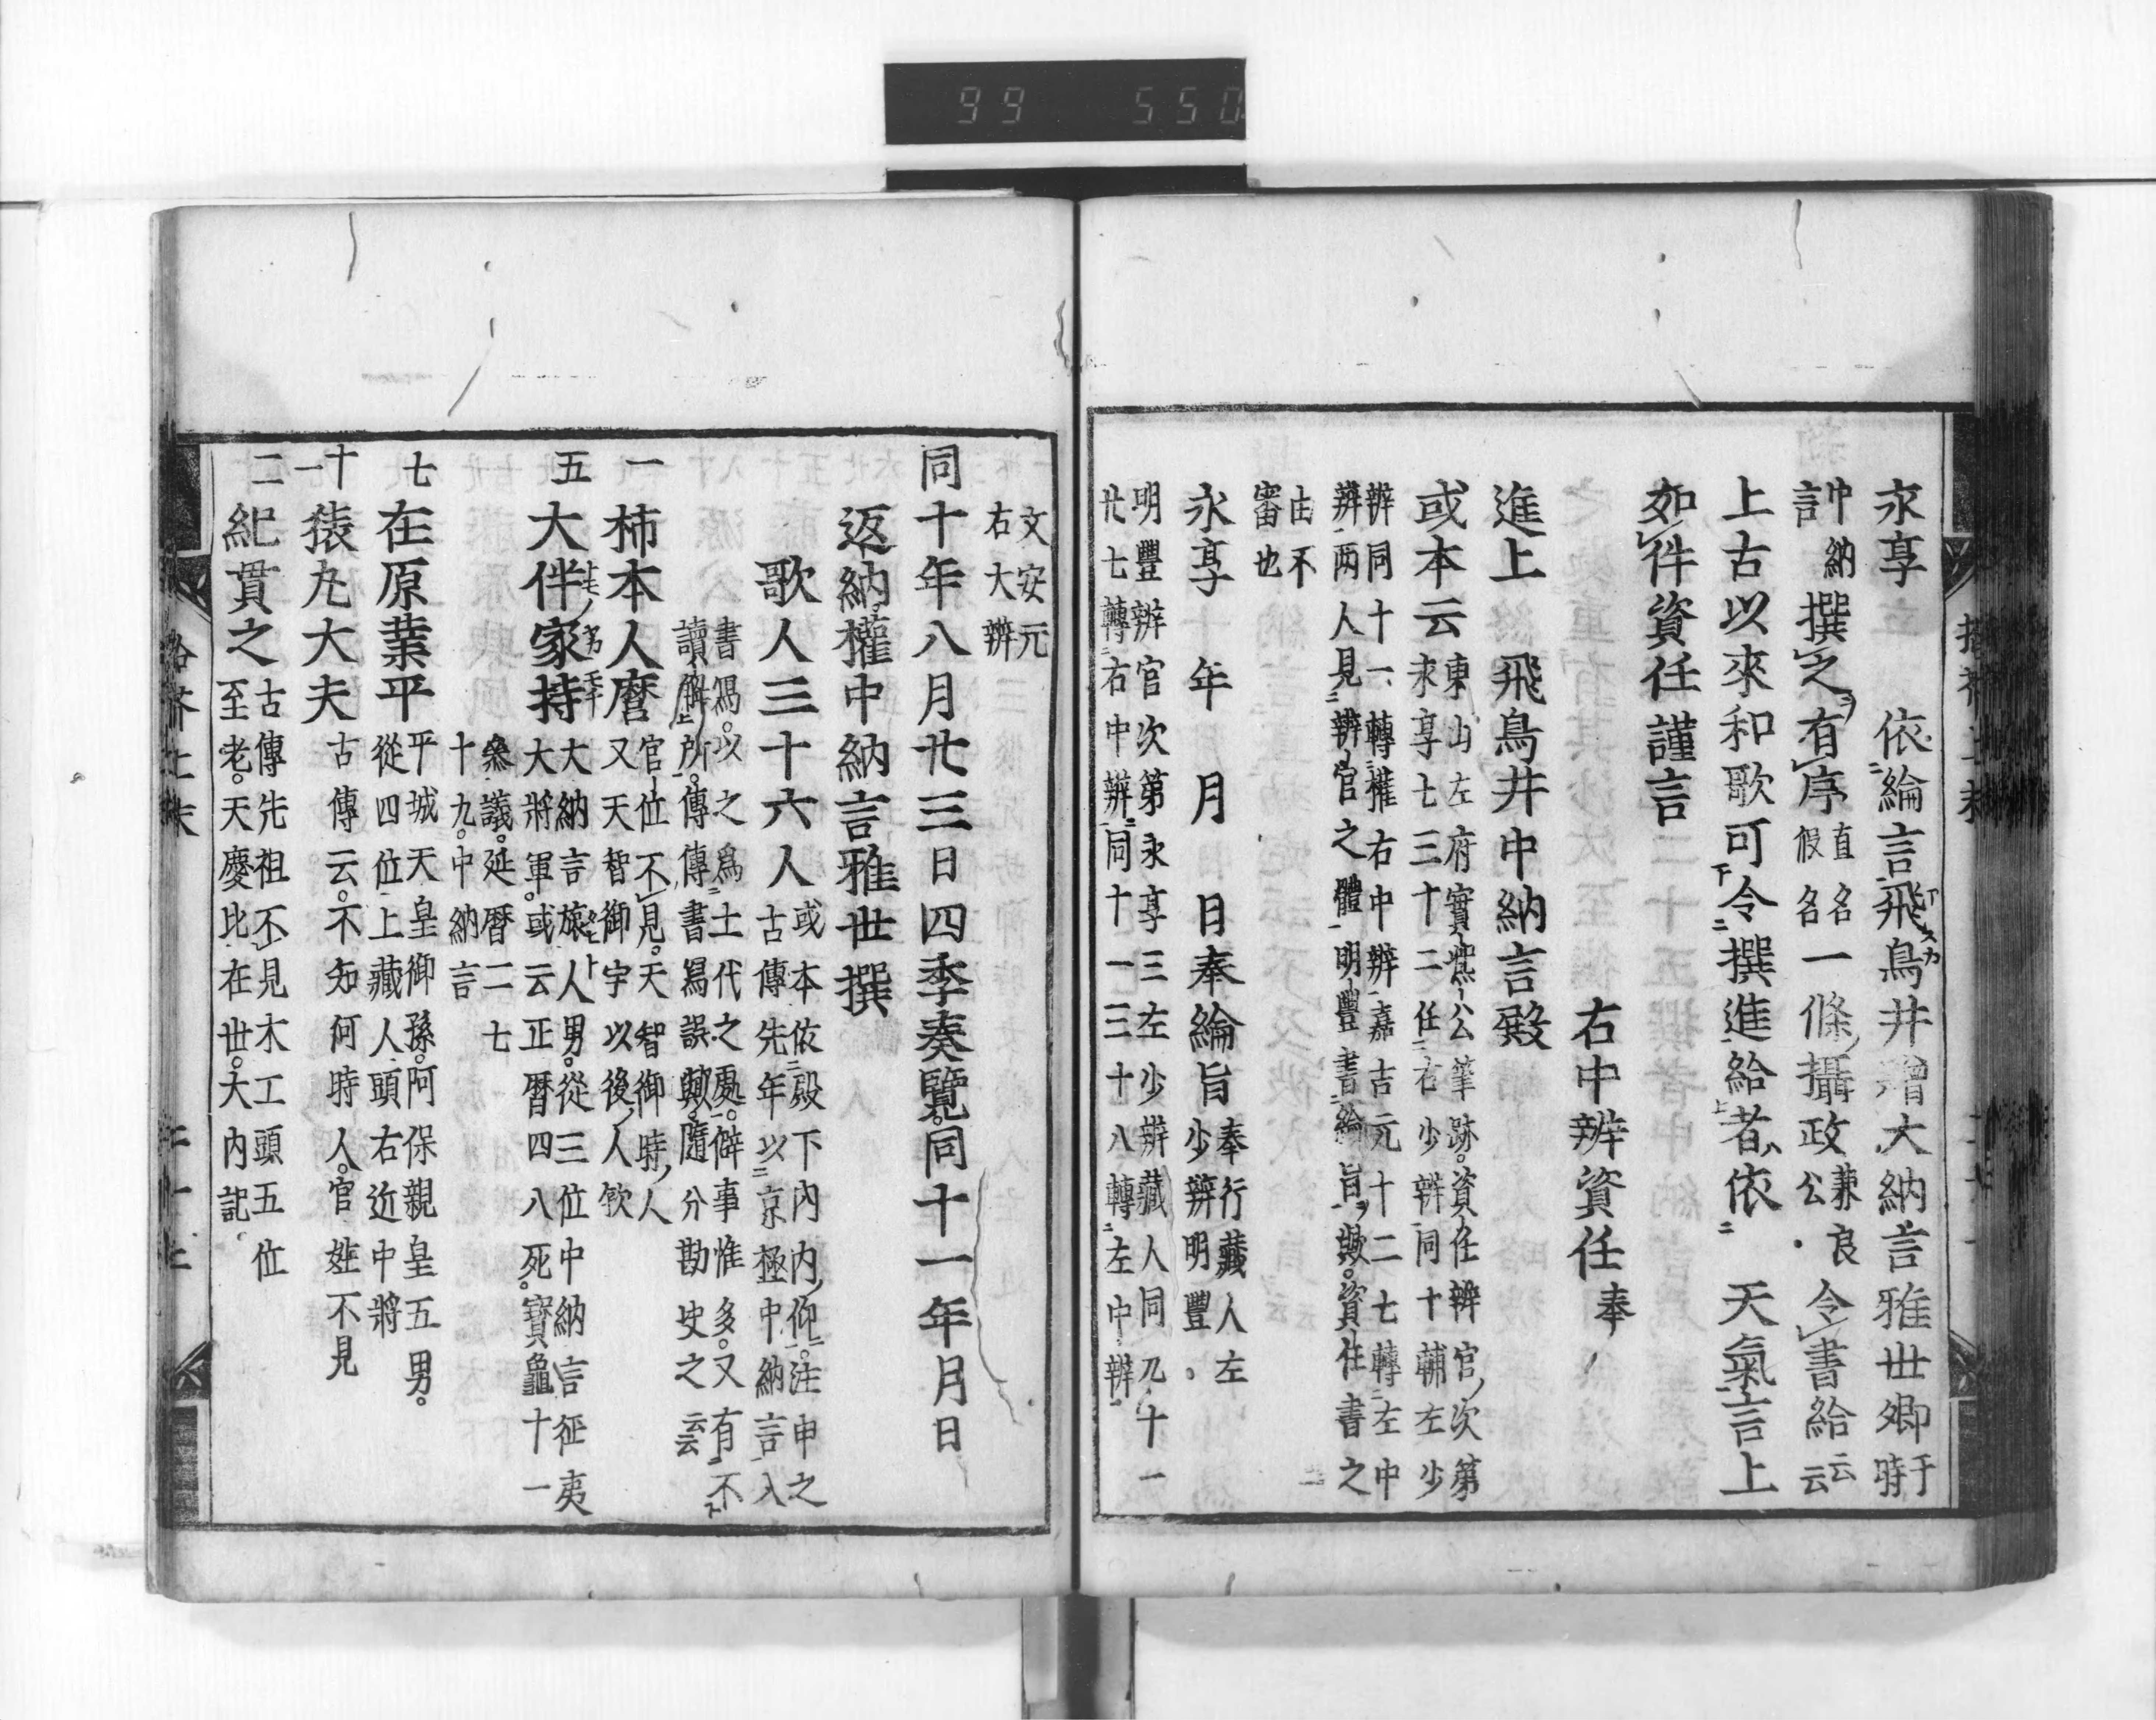 99 550
永享 依綸言飛鳥井贈大納言雅世卿于時
中納言撰之有序直名假名一條攝政兼良公令書給云云
上古以來和歌可令撰進給者依 天氣言上
如件資任謹言
右中辨資任奉
進上 飛鳥井中納言殿
或本云東山左府實凞公筆跡資任辨官次第
永享七三十二任右少辨同十輔左少
辨同十一轉權右中辨嘉吉元十二七轉左中
辨兩人見辨官之體明豐書綸旨歟資任書之
由不
審也
永享 年 月 日奉綸旨奉行藏人左少辨明豐
明豐辨官次第永享三左少辨藏人同九十一
廿七轉右中辨同十一三十八轉左中辨
文安元
右大辨
同十年八月廿三日四季奏覽同十一年月日
返納權中納言雅世撰
歌人三十六人或本依殿下內內仰注申之
古傳先年以京極中納言入
書寫以之爲土代之處僻事惟多又有不
讀解所傳傳書寫誤歟隨分勘史之云云
一 柿本人麿官位不見天智御時人
又天智御宇以後人欤
五 大伴家持大納言旅人男從三位中納言征夷
大將軍或云正曆四八死寶龜十一
叅議延曆二七
十九中納言
七 在原業平平城天皇御孫阿保親皇五男
從四位上藏人頭右近中將
十一 猿丸大夫古傳云不知何時人官姓不見
二 紀貫之古傳先祖不見木工頭五位
至老天慶比在世大內記